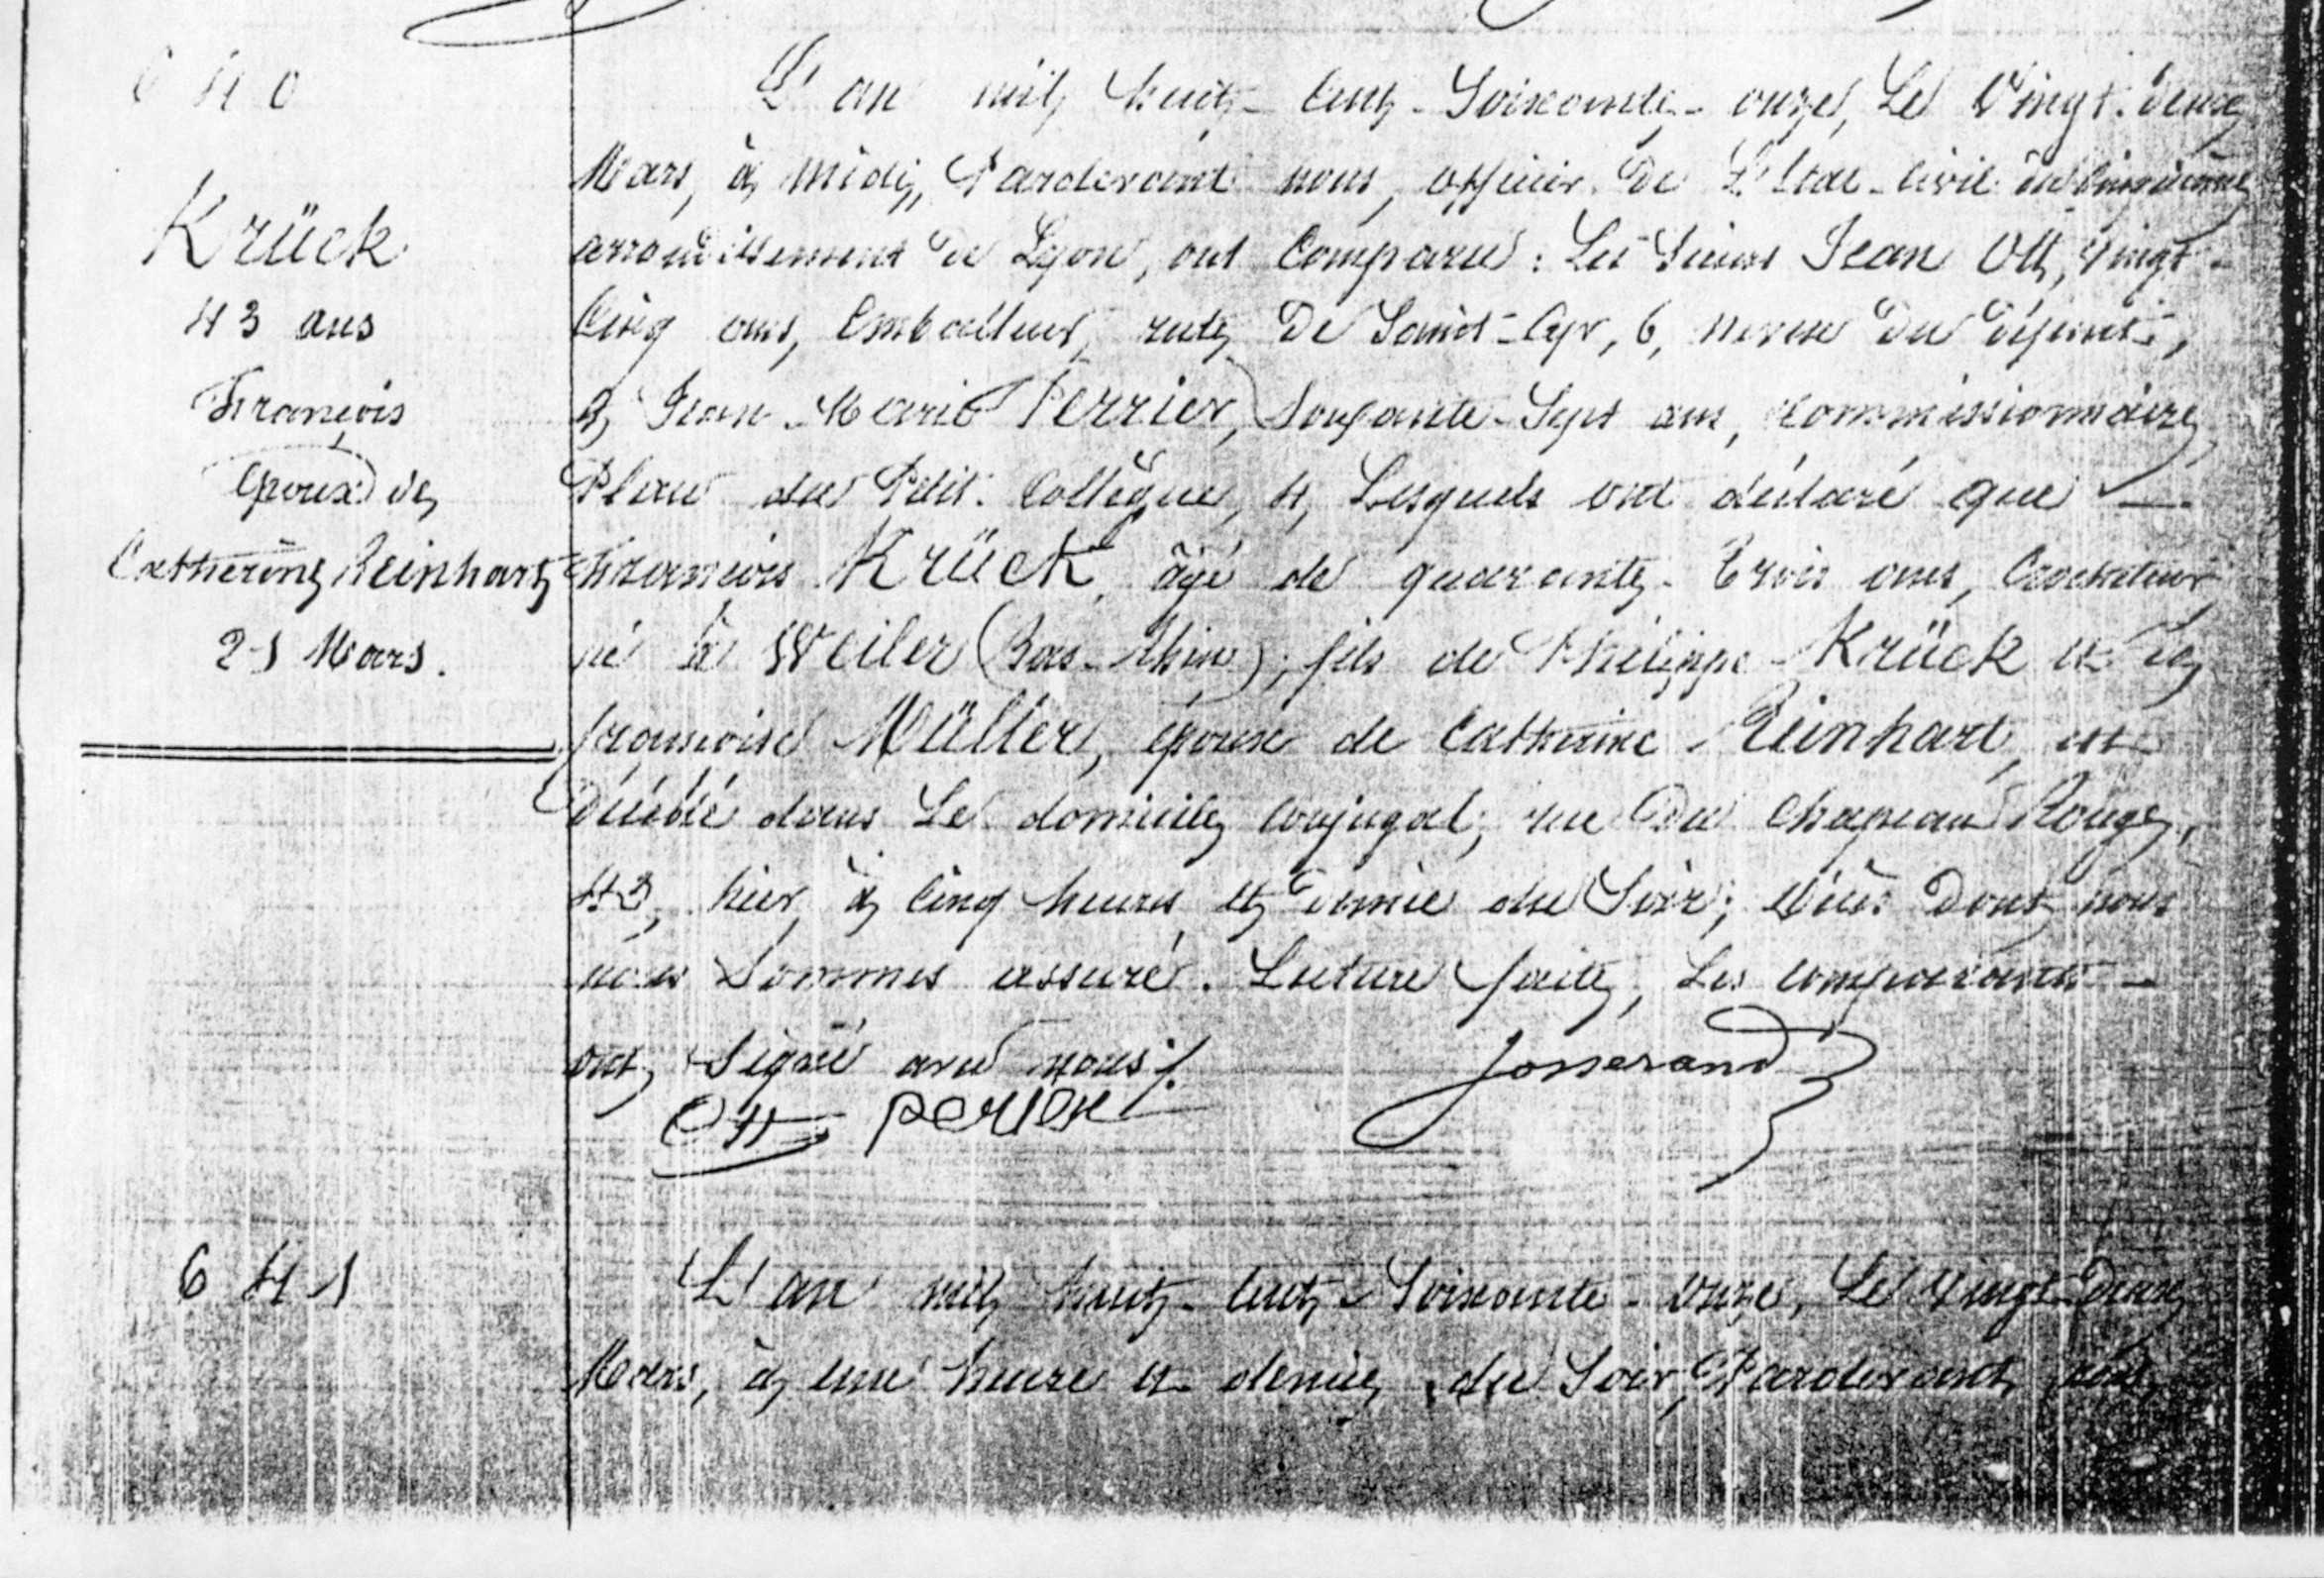 640
Krück
43 ans
François
époux de
Catherine Reinhart
21 Mars.
L'an mil huit-cent-soixante-onze, le vingt-deux
Mars, à midi, Pardevant nous, officier de l'État-civil du cinquième
arrondissement de Lyon, ont comparu: Les sieurs Jean Ott, vingt-
cinq ans, emballeur, rue de Saint-Cyr, 6, neveu du défunt,
& Jean-Marie Perrier, soixante-sept ans, commissionnaire,
Place du Petit-Collège, 4, Lesquels ont déclaré que —
François Krück, âgé de quarante-trois ans, crocheteur,
né à Weiler (Bas-Rhin), fils de Philippe Krück et de
françoise Müller, époux de Catherine Reinhart, est
décédé dans le domicile conjugal, rue du Chapeau Rouge,
42, hier, à cinq heures et demie du soir; décès dont nous
nous sommes assuré. Lecture faite, les comparants —
ont signé avec nous ./.
Ott perier
Josserand
641
L'an mil huit-cent-soixante-onze, le vingt-deux
Mars, à une heure et demie du soir, Pardevant nous,